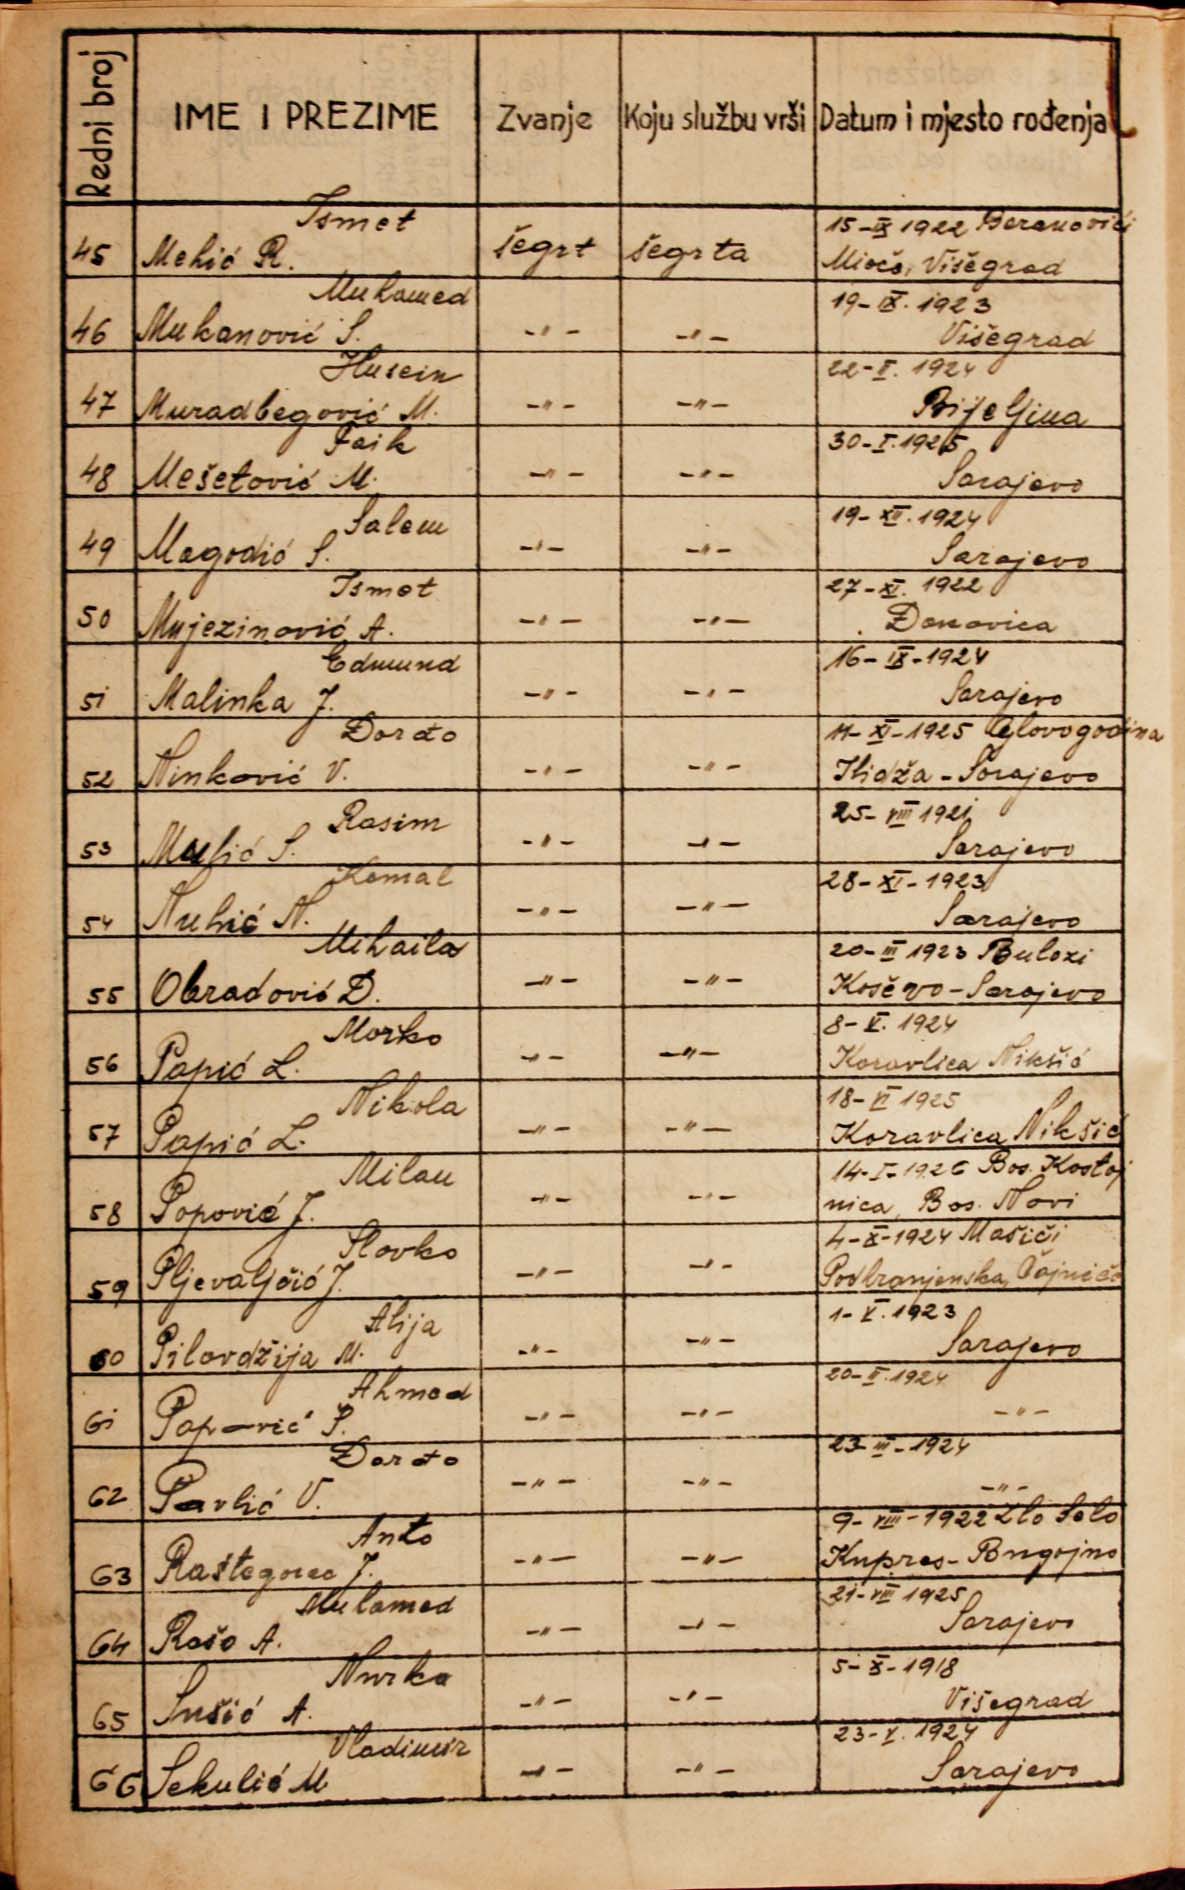 Redni broj IME I PREZIME Zvanje Koju službu vrši Datum i mjesto rođenja
Ismet 15-IX 1922 Beranovići
45 Mehić R. šegrt šegrta Mioče, Višegrad
Muhamed 19-IX. 1923
46 Mukanović S. -"- -"- Višegrad
Husein 22-II. 1924
47 Muradbegović M. -"- -"- Bijeljina
Faik 30-I. 1925
48 Mešetović M. -"- -"- Sarajevo
Salem 19-XII. 1924
49 Magodić S. -"- -"- Sarajevo
Ismet 27-XI. 1922
50 Mujezinović A. -"- -"- Đanovica
Edmund 16-IX-1924
51 Malinka J. -"- -"- Sarajevo
Đorđo 11-XI-1925 Glovogodina
52 Ninković V. -"- -"- Ilidža - Sarajevo
Rasim 25-VIII 1921
53 S. -"- -"- Sarajevo
Kemal 28-XI-1923
54 Nuhić N. -"- -"- Sarajevo
Mihaila 20-III 1923 Bulozi
55 Obradović D. -"- -"- Koševo - Sarajevo
Marko 8-V. 1924
56 Papić L. -"- -"- Koravlica Nikšić
Nikola 18-VI 1925
57 Papić L. -"- -"- Koravlica Nikšić
Milan 14-I-1926 Bos. Kostaj
58 Popović J. -"- -"- nica, Bos. Novi
Slavko 4-X-1924 Mašići
59 Pljevaljčić J. -"- -"- Podkranjenska, Čajniče
Alija 1-V. 1923
60 Pilavdžija M. -"- -"- Sarajevo
Ahmed 20-II. 1924
61 Š. -"- -"- -"-
Đorđo 23-III-1924
62 Pavlić V. -"- -"- -"-
Anto 9-VIII-1922 Zlo Selo
63 Raštegorac J. -"- -"- Kupres - Bugojno
Muhamed 21-VIII 1925
64 Rašo A. -"- -"- Sarajevo
Nurko 5-X-1918
65 Sušić A. -"- -"- Višegrad
Vladimir 23-V. 1924
66 Sekulić M -"- -"- Sarajevo